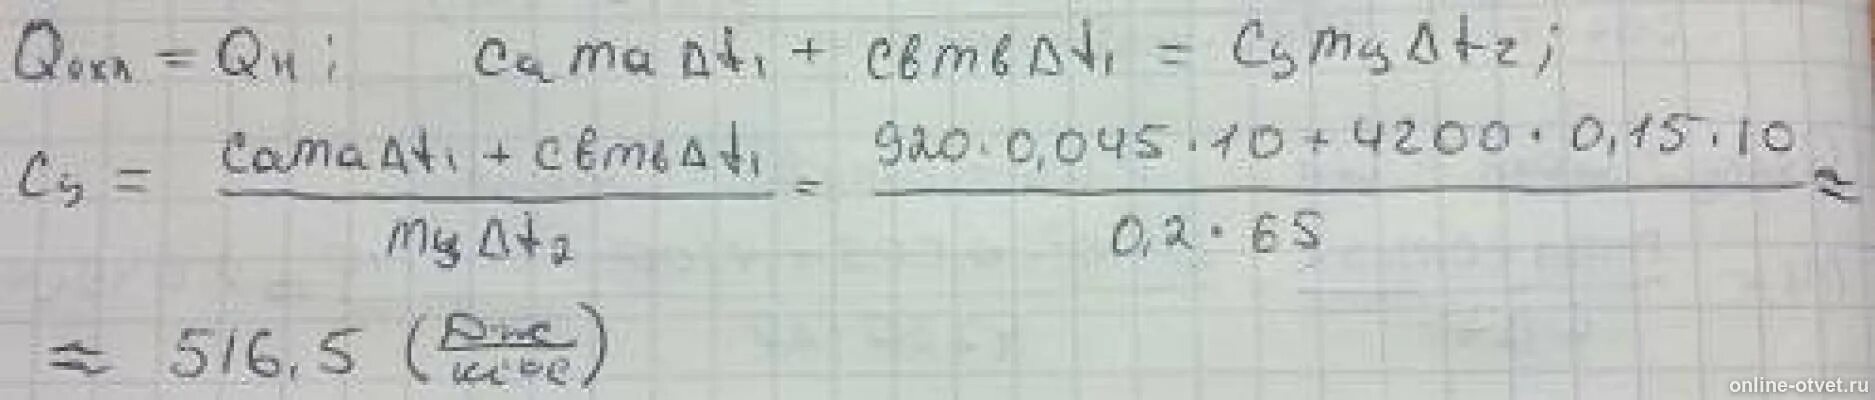 Qохл = Qн; cа mа Δt₁ + cв mв Δt₁ = cц mц Δt₂;
cц = (cа mа Δt₁ + cв mв Δt₁) / (mц Δt₂) = (920 · 0,045 · 10 + 4200 · 0,15 · 10) / (0,2 · 65) ≈
≈ 516,5 (Дж / кг°С)
online-otvet.ru